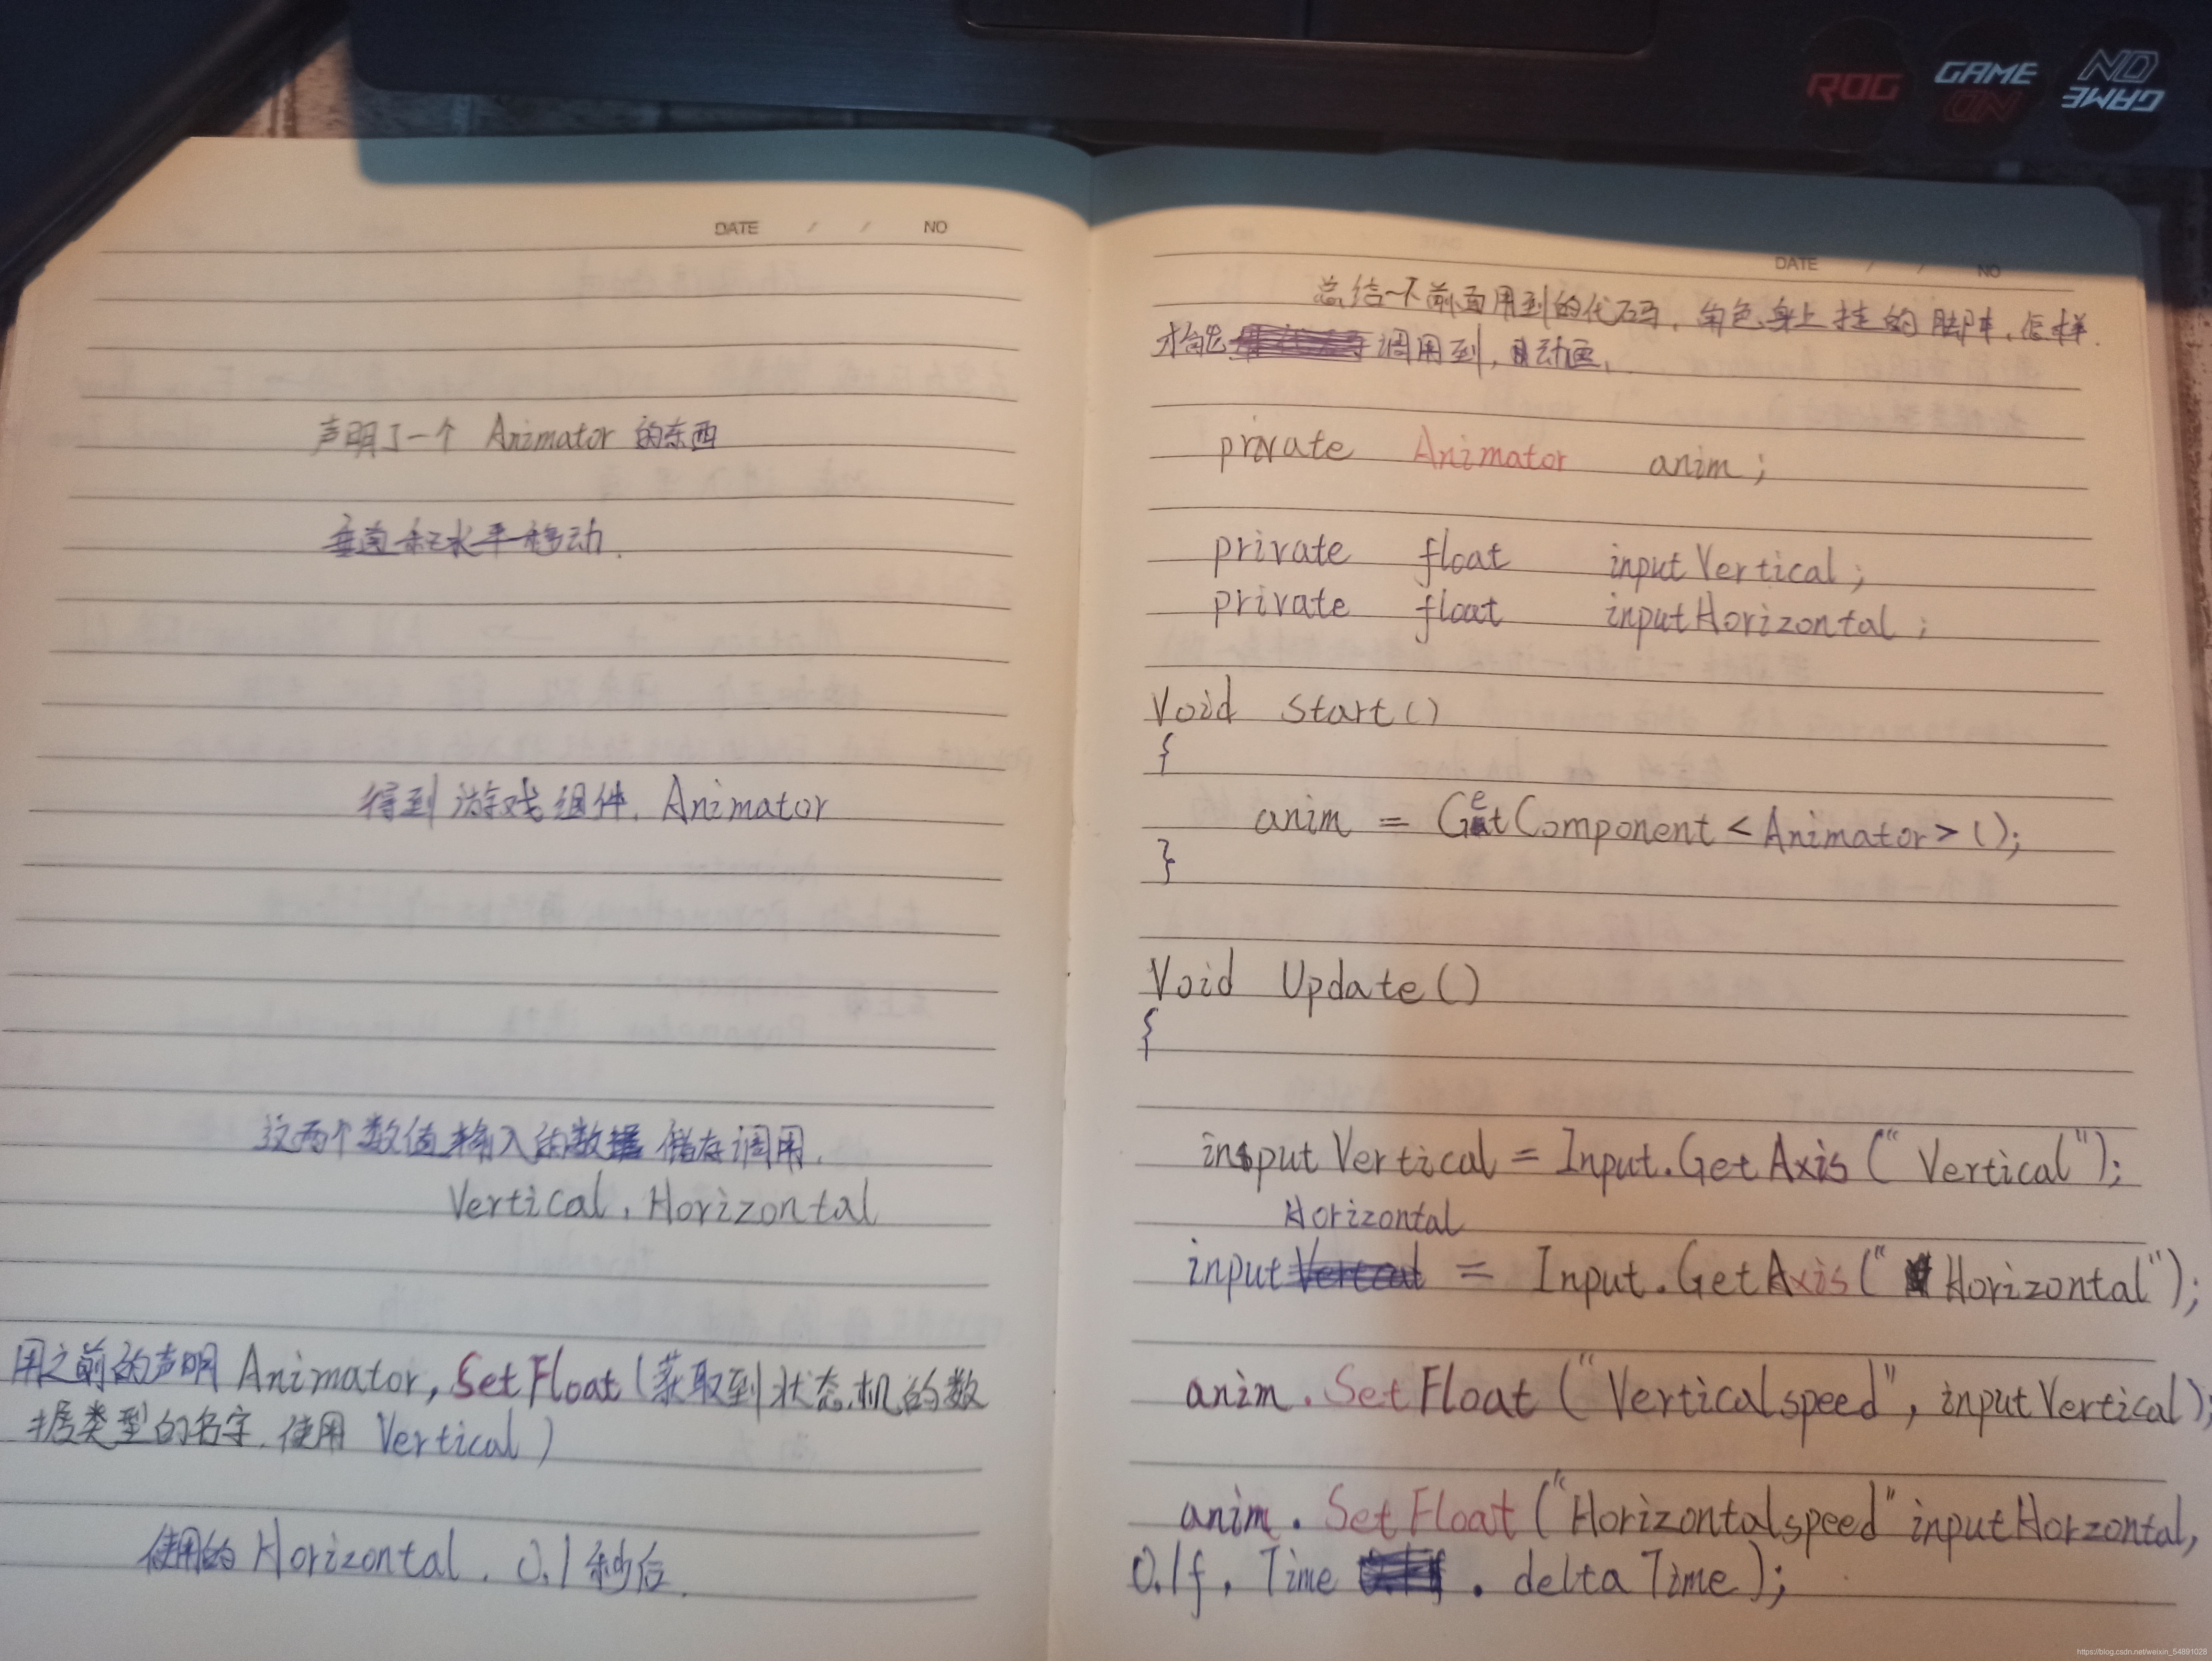 ROG
GAME
ON
NO
GAME
DATE / / NO
声明了一个 Animator 的东西
垂直和水平移动.
得到游戏组件. Animator
这两个数值输入的数据 储存调用.
Vertical , Horizontal
用之前的声明 Animator, SetFloat (获取到状态机的数
据类型的名字, 使用 Vertical )
使用的 Horizontal . 0.1 秒后.
DATE / / NO
总结一下前面用到的代码, 角色身上挂的脚本, 怎样
才能 调用到, 动画,
private Animator anim ;
private float inputVertical ;
private float inputHorizontal ;
Void Start ( )
{
anim = GetComponent < Animator > ( );
}
Void Update ( )
{
input Vertical = Input.GetAxis ("Vertical");
Horizontal
input = Input.GetAxis ("Horizontal");
anim . SetFloat ("Verticalspeed", inputVertical);
anim . SetFloat ("Horizontalspeed" inputHorzontal,
0.1f , Time . deltaTime );
https://blog.csdn.net/weixin_54891028